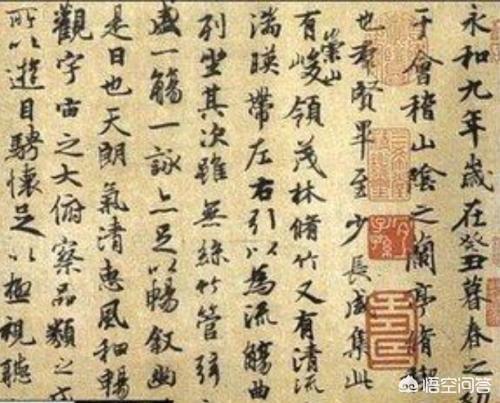 永和九年歲在癸丑暮春之初
于會稽山陰之蘭亭脩禊
也羣賢畢至少長咸集此
崇山
有峻領茂林脩竹又有清流
湍暎帶左右引以為流觴曲
列坐其次雖無絲竹管弦
盛一觴一詠亦足以暢敘幽
是日也天朗氣清惠風和暢
觀宇宙之大俯察品類之
所以遊目騁懷足以極視聽
悟空问答